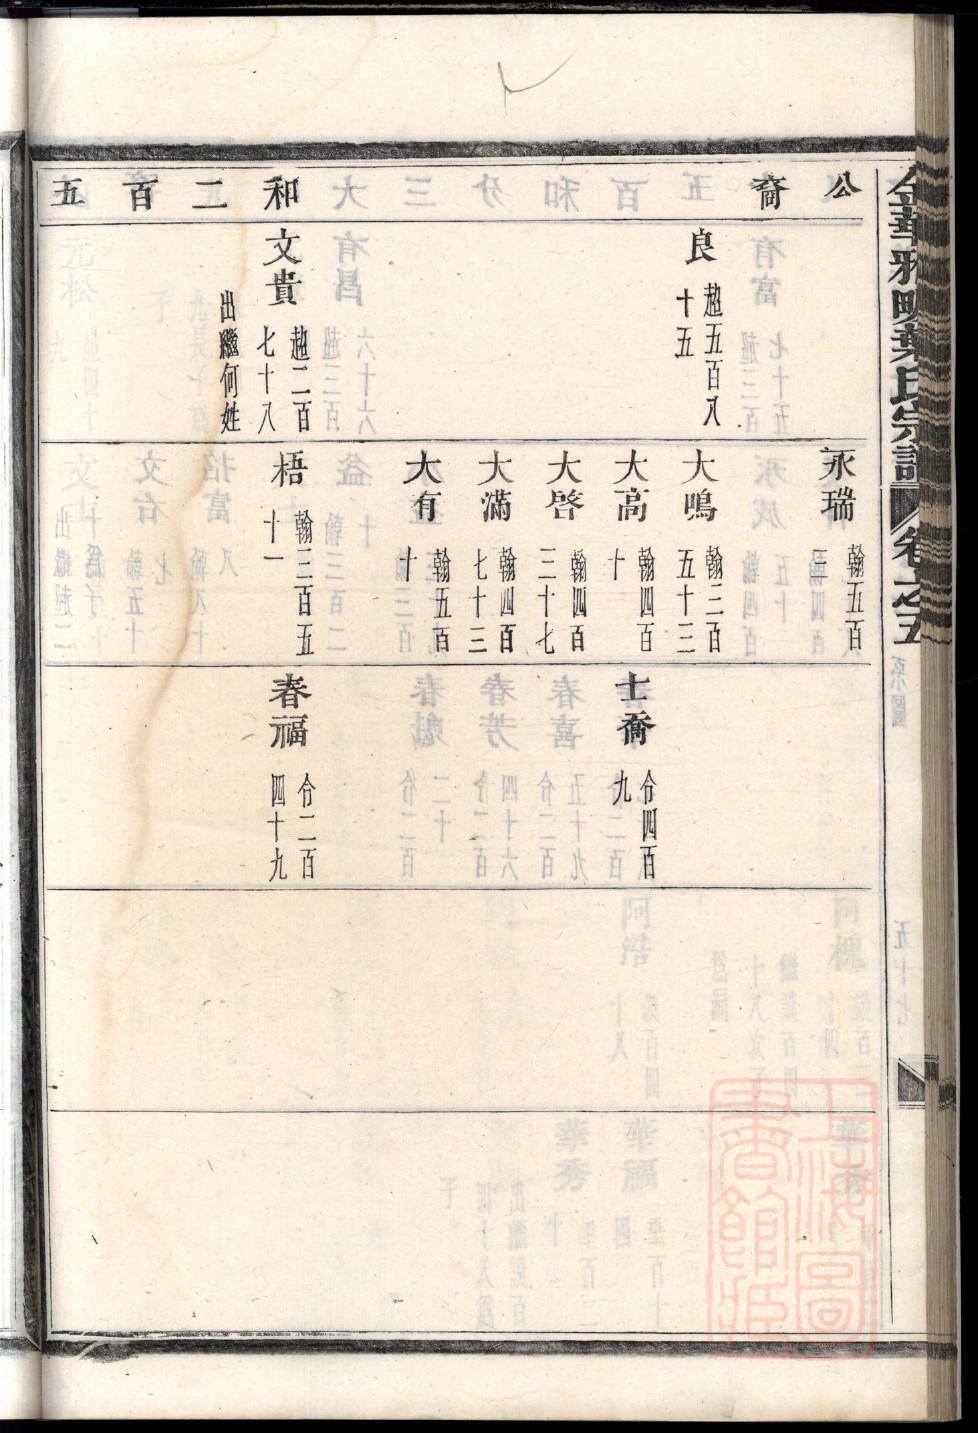 金華雅畈葉氏宗譜 卷之五
公裔 和二百五
良 趙五百八
十五
文貴 趙二百
七十八
出繼何姓
永瑞 翰五百
三
大鳴 翰三百
五十三
大高 翰四百
十
大啓 翰四百
三十七
大滿 翰四百
七十三
大有 翰五百
十
梧 翰三百五
十一
士喬 令四百
九
春福 令二百
四十九
上海圖
書館藏